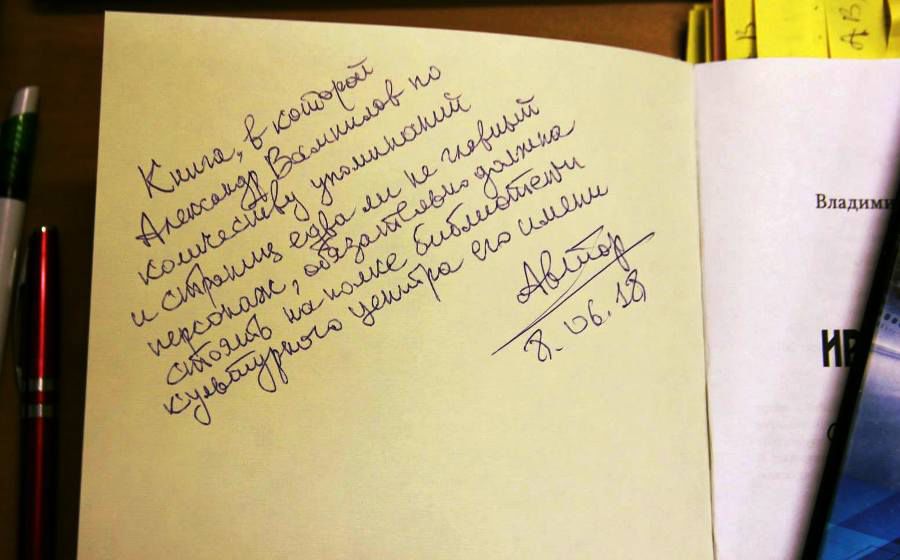 Книга, в которой
Александр Вампилов по
количеству упоминаний
и страниц едва ли не главный
персонаж, обязательно должна
стоять на полке библиотеки
культурного центра его имени
Автор
8.06.18
Владими
ИР
В
АВ